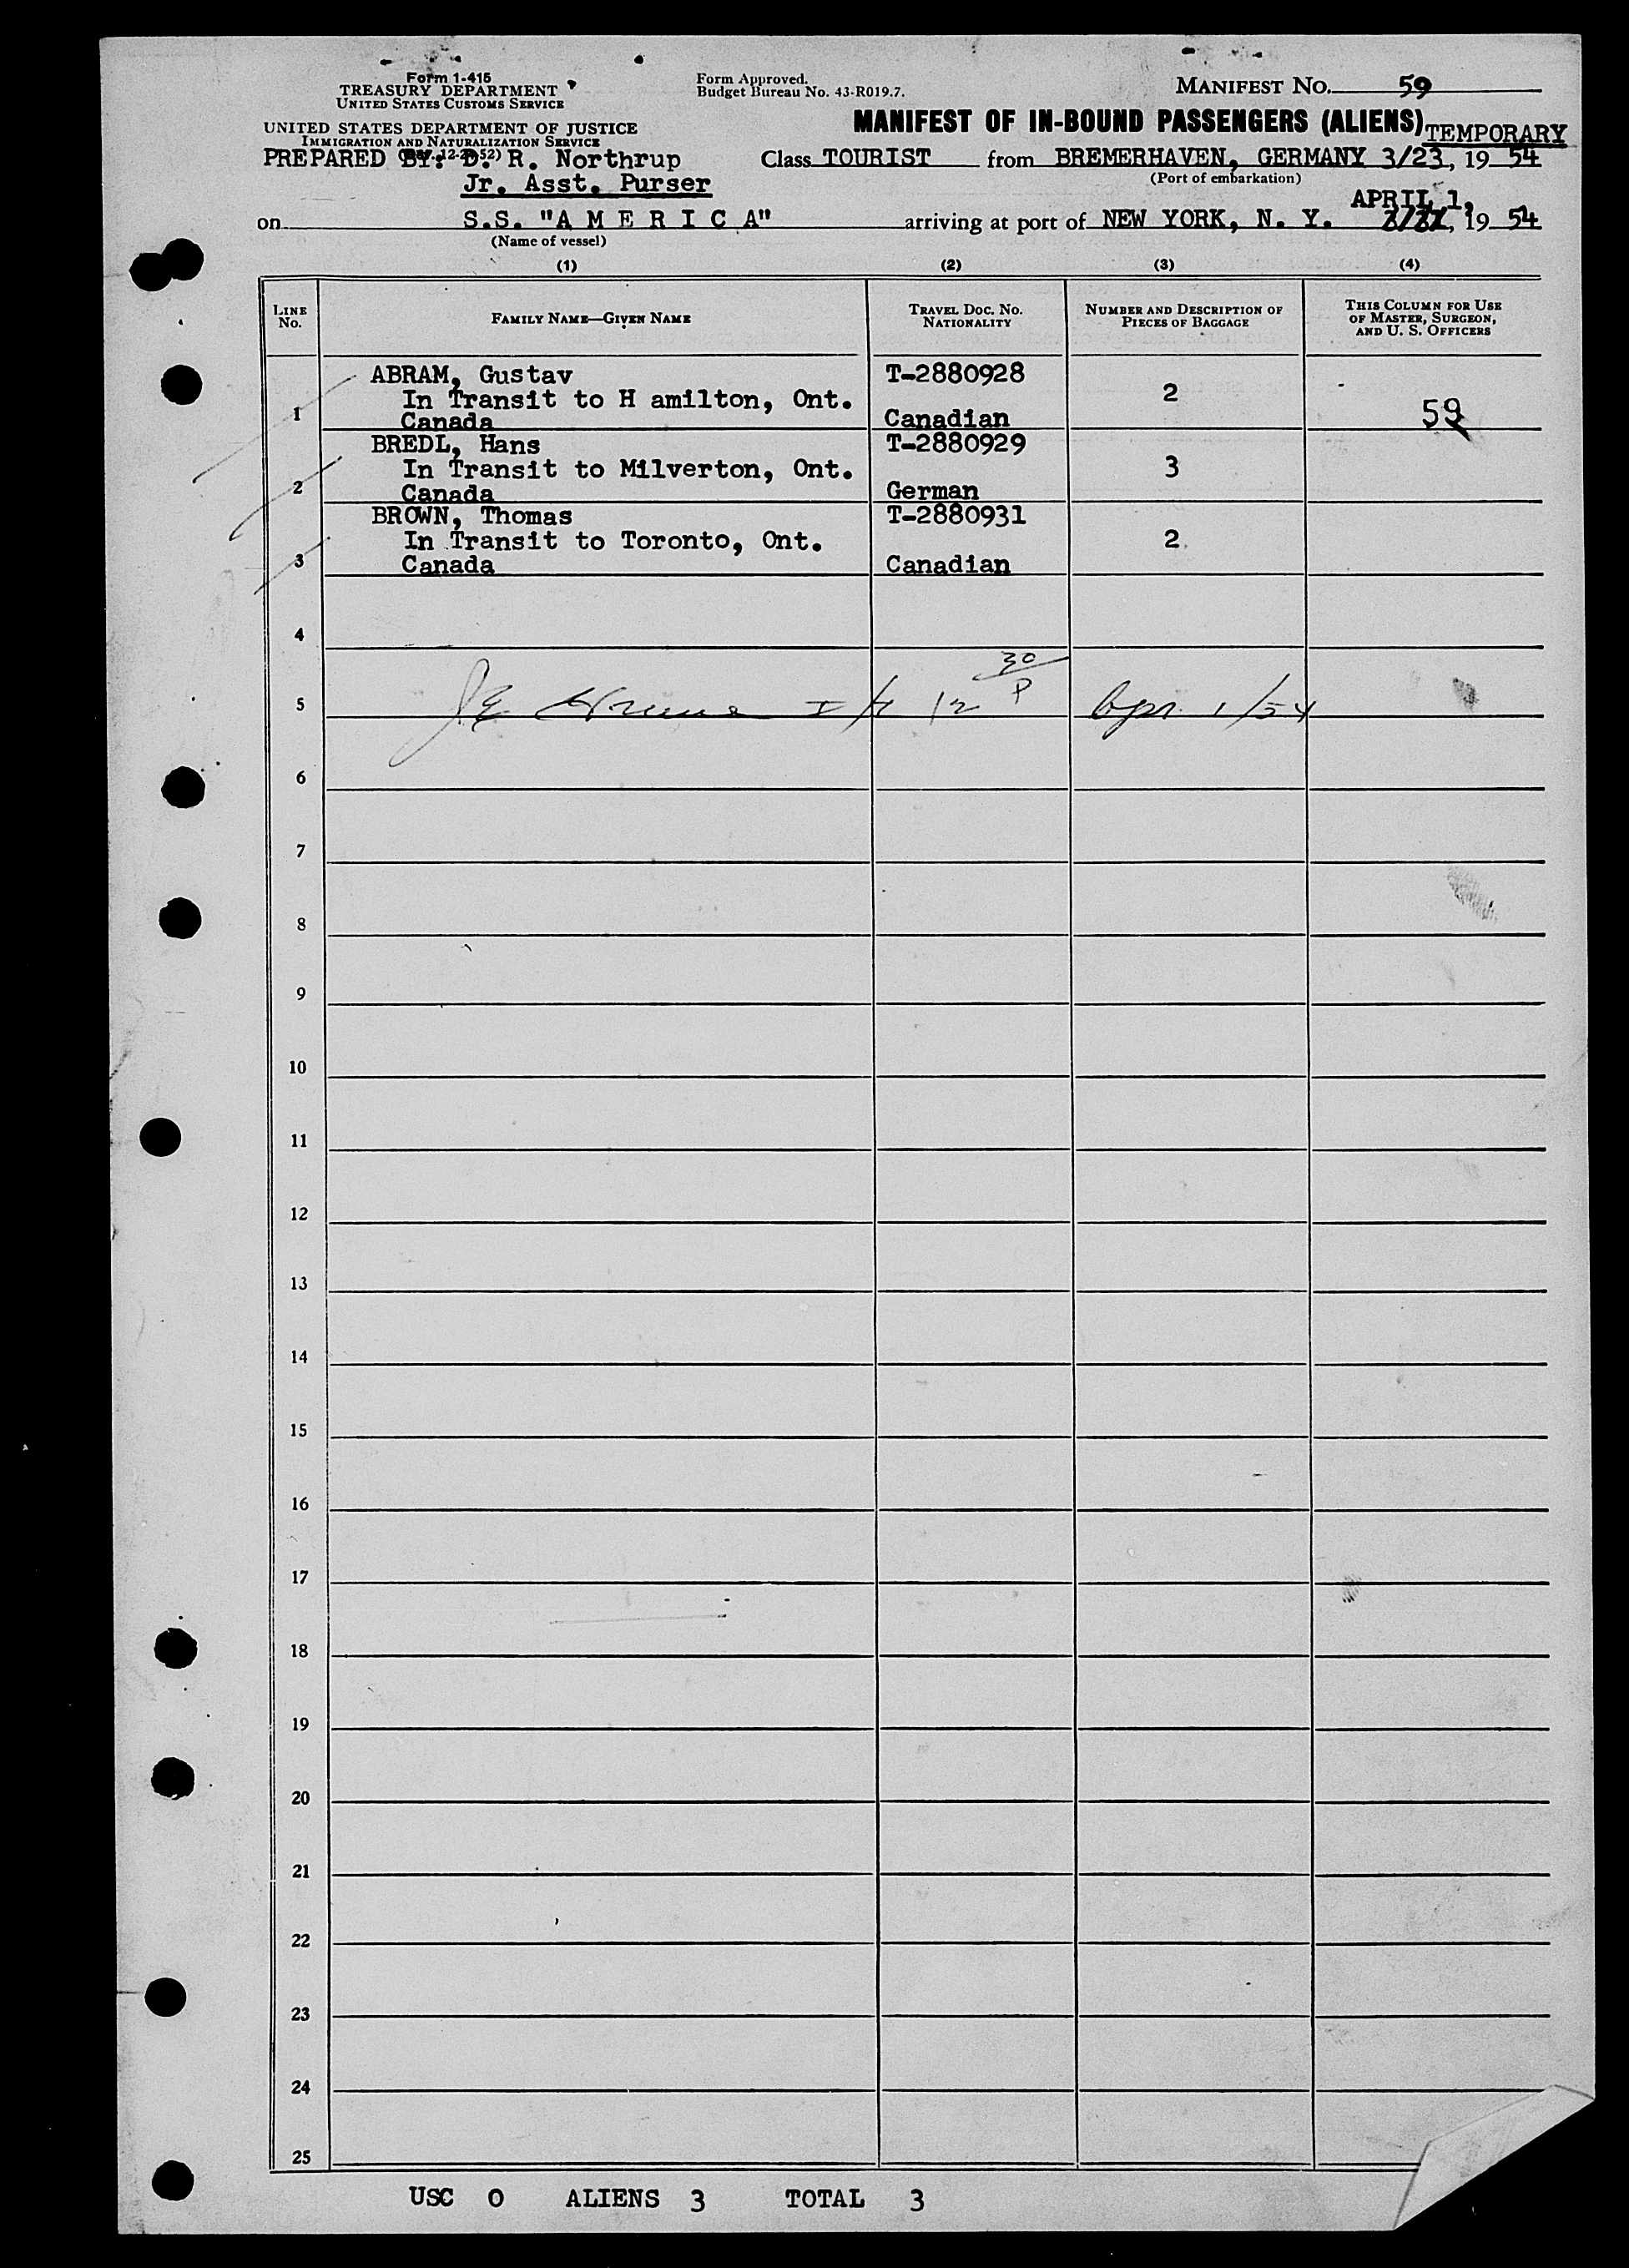 Form 1-415
TREASURY DEPARTMENT
UNITED STATES CUSTOMS SERVICE
UNITED STATES DEPARTMENT OF JUSTICE
IMMIGRATION AND NATURALIZATION SERVICE
PREPARED BY: D. R. Northrup
Jr. Asst. Purser
Form Approved.
Budget Bureau No. 43-R019.7.
MANIFEST NO. 59
MANIFEST OF IN-BOUND PASSENGERS (ALIENS) TEMPORARY
Class TOURIST from BREMERHAVEN, GERMANY 3/23, 19 54
(Port of embarkation)
APRIL 1,
on S.S. "A M E R I C A" arriving at port of NEW YORK, N. Y. , 19 54
(Name of vessel)
(1) (2) (3) (4)
LINE No.
FAMILY NAME—GIVEN NAME
TRAVEL DOC. NO. NATIONALITY
NUMBER AND DESCRIPTION OF PIECES OF BAGGAGE
THIS COLUMN FOR USE OF MASTER, SURGEON, AND U. S. OFFICERS
ABRAM, Gustav T-2880928
In Transit to H amilton, Ont. 2
1 Canada Canadian 59
BREDL, Hans T-2880929
In Transit to Milverton, Ont. 3
2 Canada German
BROWN, Thomas T-2880931
In Transit to Toronto, Ont. 2
3 Canada Canadian
4
5 12 30/P Apr. 1/54
6
7
8
9
10
11
12
13
14
15
16
17
18
19
20
21
22
23
24
25
USC 0 ALIENS 3 TOTAL 3